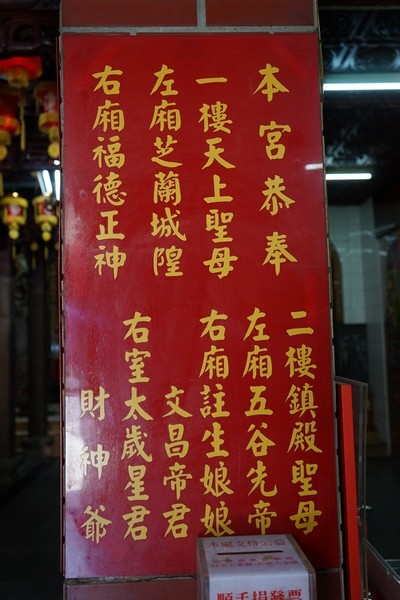 本宮恭奉
一樓天上聖母
左廂芝蘭城隍
右廂福德正神
二樓鎮殿聖母
左廂五谷先帝
右廂註生娘娘
文昌帝君
右室太歲星君
財神爺
順手捐發票